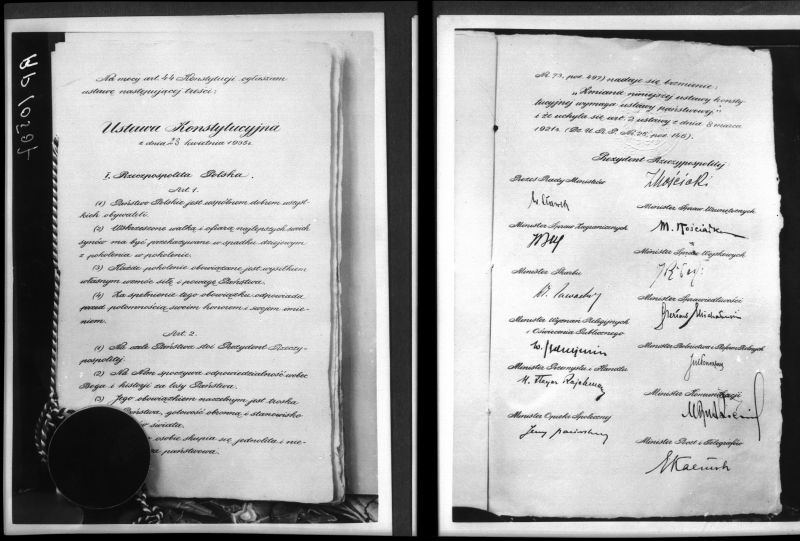 Na mocy art. 44 Konstytucji ogłaszam
ustawę następującej treści:
Ustawa Konstytucyjna
z dnia 23 kwietnia 1935 r.
I. Rzeczpospolita Polska.
Art. 1.
(1) Państwo Polskie jest wspólnem dobrem wszyst-
kich obywateli.
(2) Wskrzeszone walką i ofiarą najlepszych swoich
synów ma być przekazywane w spadku dziejowym
z pokolenia w pokolenie.
(3) Każde pokolenie obowiązane jest wysiłkiem
własnym wzmóc siłę i powagę Państwa.
(4) Za spełnienie tego obowiązku odpowiada
przed potomnością swoim honorem i swojem imie-
niem.
Art. 2.
(1) Na czele Państwa stoi Prezydent Rzeczy-
pospolitej.
(2) Na Nim spoczywa odpowiedzialność wobec
Boga i historji za losy Państwa.
(3) Jego obowiązkiem naczelnym jest troska
Państwa, gotowość obronną i stanowisko
świata.
osobie skupia się jednolita i nie-
państwowa.
Nr. 73, poz. 497) nadaje się brzmienie:
"Zmiana niniejszej ustawy konsty-
tucyjnej wymaga ustawy państwowej"
i że uchyla się art. 2 ustawy z dnia 8 marca
1921 r. (Dz. U. R. P. Nr. 25, poz. 146).
Prezydent Rzeczypospolitej
I Mościcki
Prezes Rady Ministrów
W Sławek
Minister Spraw Wewnętrznych
M. Kościałk
Minister Spraw Zagranicznych
Minister Spraw Wojskowych
Minister Skarbu
Wł. Zawadzki
Minister Sprawiedliwości
Minister Wyznań Religijnych
i Oświecenia Publicznego
Minister Rolnictwa i Reform Rolnych
Minister Przemysłu i Handlu
H. Floyar Rajchman
Minister Komunikacji
Minister Opieki Społecznej
Minister Poczt i Telegrafów
EKaliński